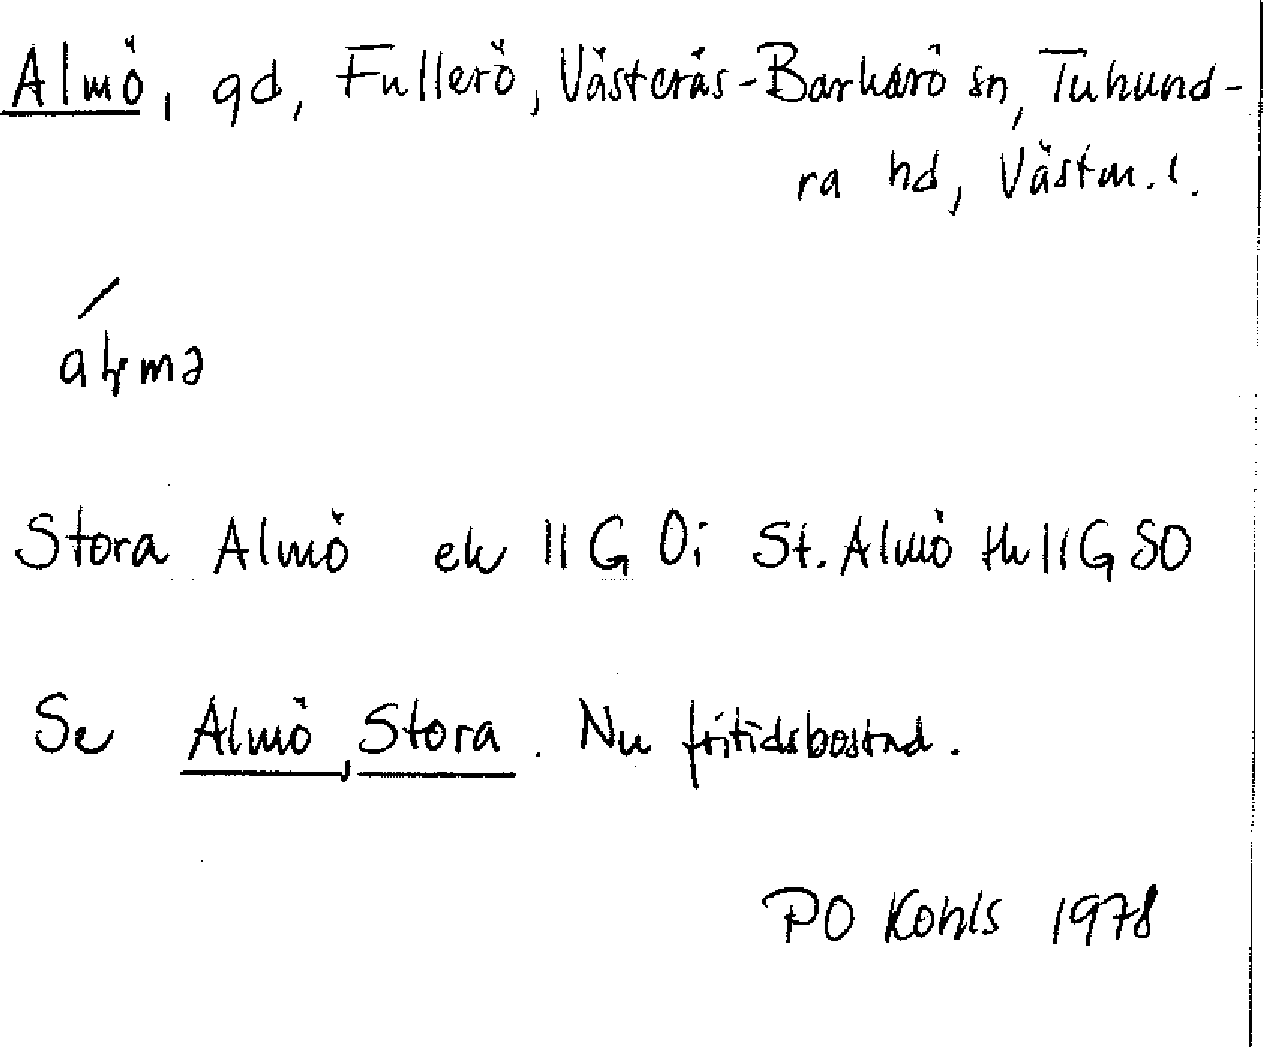 Almö, gd, Fullerö, Västerås-Barkarö sn, Tuhund-
ra hd, Västm. l.
Stora Almö ek 11G 0i St. Almö tk 11G SO
Se Almö, Stora. Nu fritidsbostad.
PO Kohls 1978